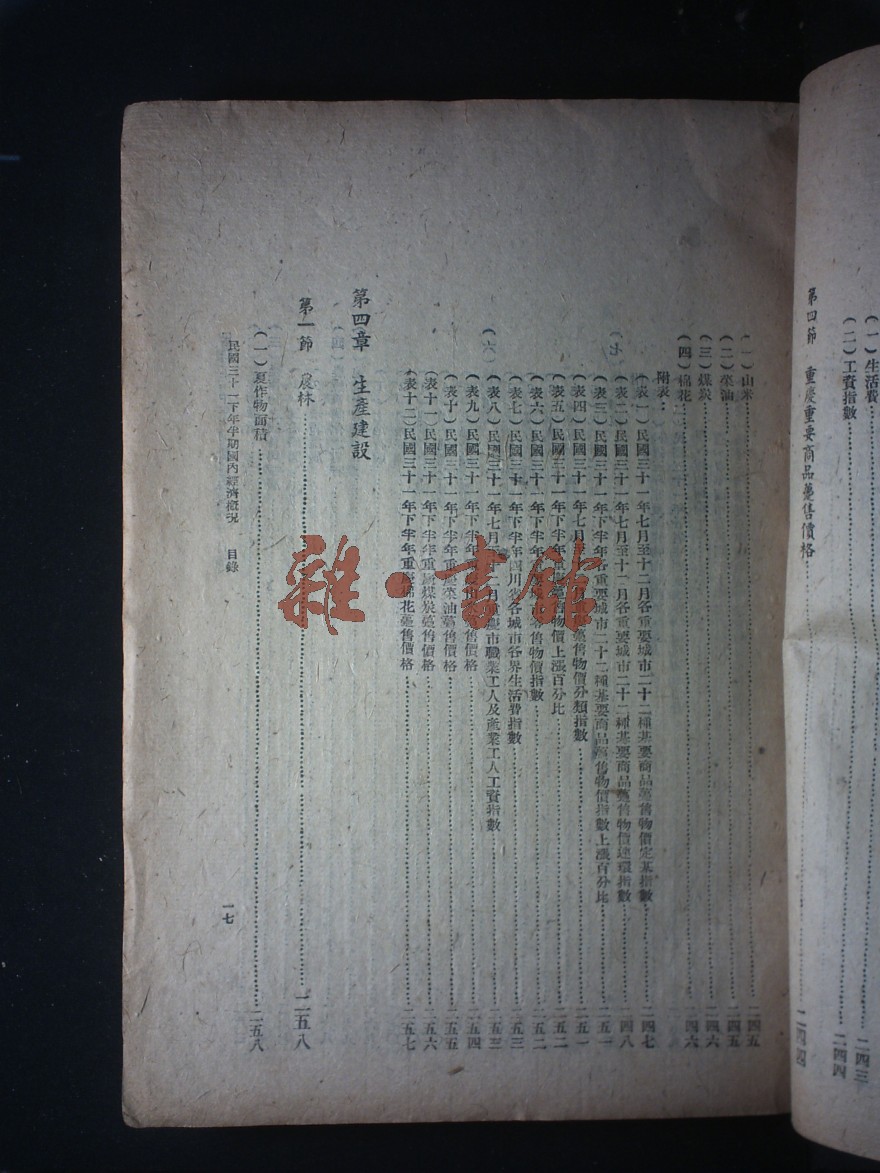 (一)生活費……二四三
(二)工資指數……二四四
第四節 重慶重要商品躉售價格……二四四
(一)山米……二四五
(二)菜油……二四五
(三)煤炭……二四六
(四)棉花……二四六
附表:
(表一)民國三十一年七月至十二月各重要城市二十二種基要商品躉售物價定基指數……二四七
(表二)民國三十一年七月至十二月各重要城市二十二種基要商品躉售物價連環指數……二四八
(表三)民國三十一年下半年各重要城市二十二種基要商品躉售物價指數上漲百分比……二五一
(表四)民國三十一年七月至十二月 躉售物價分類指數……二五一
(表五)民國三十一年下半年 躉售物價上漲百分比……二五二
(表六)民國三十一年下半年 要城市零售物價指數……二五二
(表七)民國三十一年下半年四川省各城市各界生活費指數……二五三
(表八)民國三十一年七月至十二月重慶市職業工人及產業工人工資指數……二五三
(表九)民國三十一年下半年重慶 售價格……二五四
(表十)民國三十一年下半年重慶菜油躉售價格……二五五
(表十一)民國三十一年下半年重慶煤炭躉售價格……二五六
(表十二)民國三十一年下半年重慶棉花躉售價格……二五七
第四章 生產建設
第一節 農林……二五八
(一)夏作物面積……二五八
民國三十一下年半期國內經濟概況 目錄
一七
雜·書館